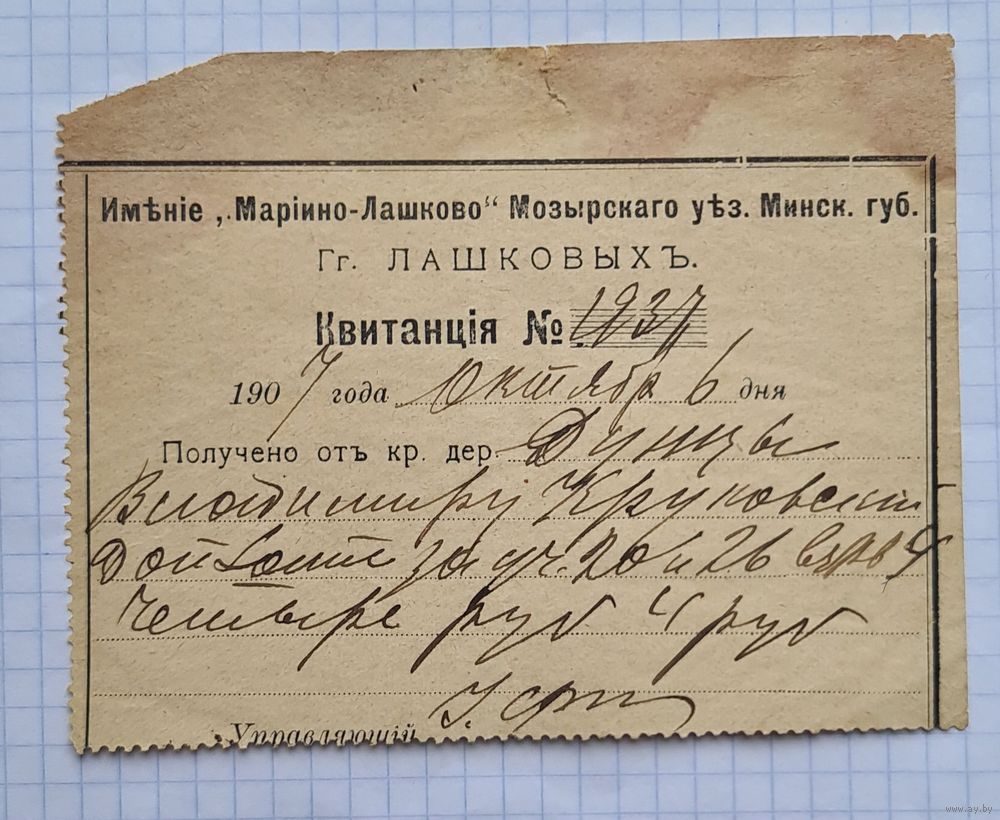 Имѣніе „Маріино-Лашково“ Мозырскаго уѣз. Минск. губ.
Гг. ЛАШКОВЫХЪ.
Квитанція № 1937
1907 года Октябр 6 дня
Получено отъ кр. дер.
Владимиру Круковский
за уч. 20 и 26
Четыре руб 4 руб
Управляющій
www.ay.by